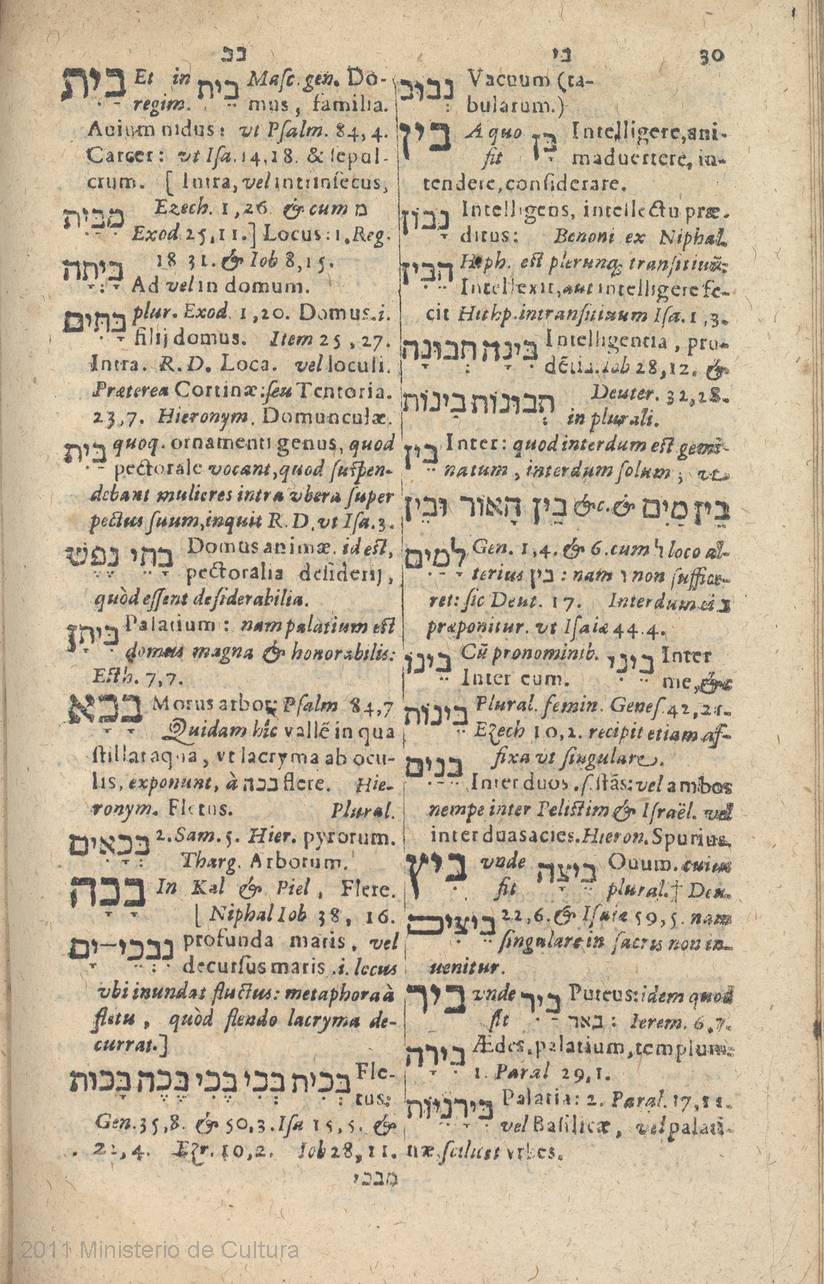 בי 30
נבוב Vacuum (ta-
bularum.)
בין A quo בן Intelligere, ani-
fit maduertere, in-
tendere, considerare.
נבון Intelligens, intellectu præ-
ditus: Benoni ex Niphal.
הבין Hiph. est plerunq; transitiuũ:
Intellexit, aut intelligere fe-
cit Hithp. intransitiuum Isa. 1,3.
בינה תבונה Intelligentia, pru-
dẽtia. Iob 28,12. &
תבונות בינות Deuter. 32,28.
in plurali.
בין Inter: quod interdum est gemi-
natum, interdum solum; vt
בין מים &c. & בין האור ובין
למים Gen. 1,4. & 6. cum ל loco al-
terius בין : nam ו non suffice-
ret: sic Deut. 17. Interdum ei
præponitur. vt Isaiæ 44.4.
בינו Cũ pronominib. ביני Inter
Inter eum. me, &c
בינות Plural. femin. Genes. 42,21.
Ezech 10,2. recipit etiam af-
fixa vt singulare.
בנים Inter duos .s. stãs: vel ambos
nempe inter Pelistim & Israël. vel
inter duas acies. Hieron. Spurius.
ביץ vnde ביצה Ouum. cuius
fit plural. † Deu.
ביצים 22,6. & Isaiæ 59,5. nam
singulare in sacris non in-
uenitur.
ביר vnde ביר Puteus: idem quod
fit באר : Ierem. 6,7.
בירה Ædes, palatium, templum:
1. Paral 29,1.
בירניות Palatia: 2. Paral. 17,12.
vel Basilicæ, vel palati-
næ scilicet vrbes.
בכ
בית Et in בית Masc. gen. Do-
regim. mus, familia.
Auium nidus: vt Psalm. 84,4.
Carcer: vt Isa. 14,18. & sepul-
crum. [ Intra, vel intrinsecus,
מבית Ezech. 1,26 & cum מ
Exod 25,11.] Locus: 1. Reg.
ביתה 18 31. & Iob 8,15.
Ad vel in domum.
בתים plur. Exod. 1,20. Domus .i.
filij domus. Item 25, 27.
Intra. R.D. Loca. vel loculi.
Præterea Cortinæ: seu Tentoria.
23,7. Hieronym. Domunculæ.
בית quoq. ornamenti genus, quod
pectorale vocant, quod suspen-
debant mulieres intra vbera super
pectus suum, inquit R.D. vt Isa. 3.
בתי נפש Domus animæ. id est,
pectoralia desiderij,
quòd essent desiderabilia.
ביתן Palatium: nam palatium est
domus magna & honorabilis:
Esth. 7,7.
בכא Morus arbor; Psalm 84,7
Quidam hîc vallẽ in qua
stillat aqua, vt lacryma ab ocu-
lis, exponunt, à בכה flere. Hie-
ronym. Fletus. Plural.
בכאים 2. Sam. 5. Hier. pyrorum.
Tharg. Arborum.
בכה In Kal & Piel, Flere.
[ Niphal Iob 38, 16.
נבכי-ים profunda maris, vel
decursus maris .i. locus
vbi inundat fluctus: metaphora à
fletu, quòd flendo lacryma de-
currat.]
בכית בכי בכי בכה בכות Fle-
tus:
Gen. 35,8. & 50,3. Isa 15,5. &
22,4. Ezr. 10,2. Iob 28,11.
מבכי
2011 Ministerio de Cultura